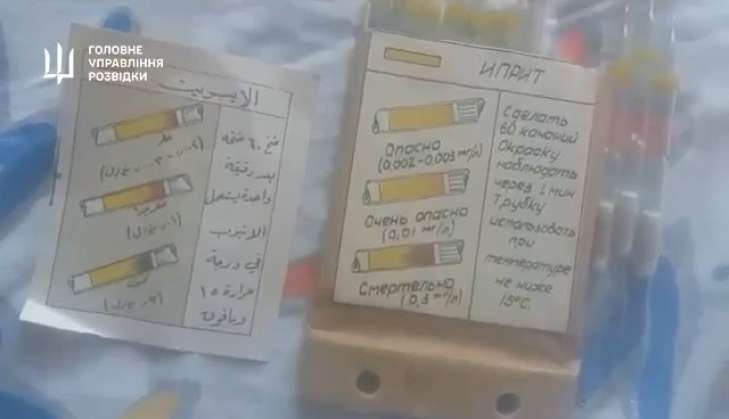 ГОЛОВНЕ
УПРАВЛІННЯ
РОЗВІДКИ
الايبريت
خطر
ضخ ٦٠ ضخه
بعد دقيقة
واحدة يستعمل
الانبوب
في درجة
حرارة ١٥
وما فوق
ИПРИТ
Опасно
(0,002-0,003 мг/л)
Очень опасно
(0,01 мг/л)
Смертельно
(0,3 мг/л)
Сделать
60 качаний
Окраску
наблюдать
через 1 мин
Трубку
использовать
при
температуре
не ниже
15°С.